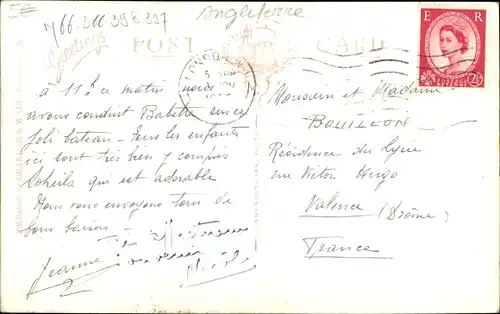 766.300 398 397
Angleterre
Greetings
POST CARD
E R
LONDON
à 11h ce matin nous
avons conduit Babette sur ce
joli bateau - Tous les enfants
ici sont très bien y compris
Soheila qui est adorable
Nous vous envoyons tous de
bons baisers -
Jeanne
Monsieur et Madame
BOUILLON
Résidence du Lycée
rue Victor Hugo
Valence (Drôme)
France